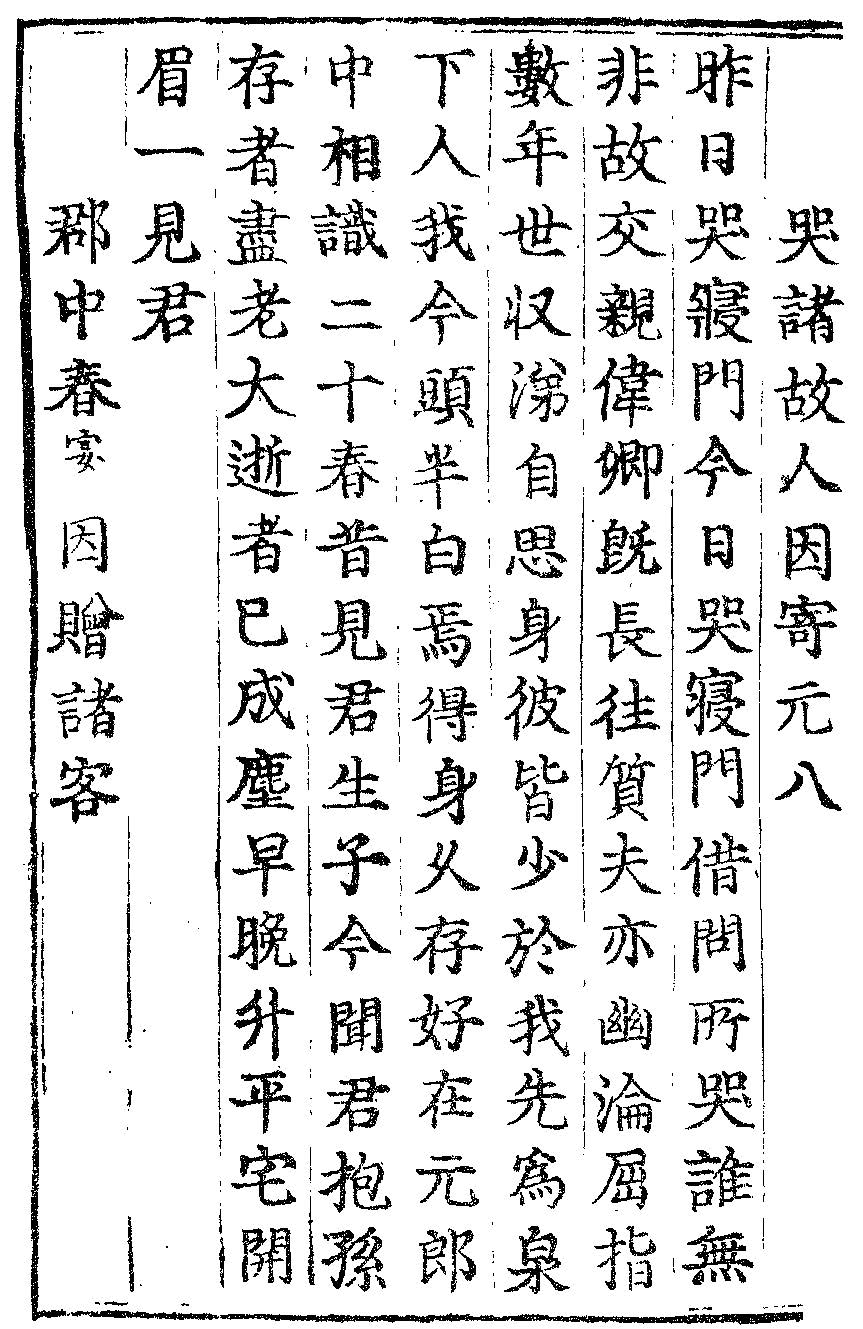 哭諸故人因寄元八
昨日哭寢門今日哭寢門借問所哭誰無
非故交親偉卿旣長往質夫亦幽淪屈指
數年世収涕自思身彼皆少於我先爲泉
下人我今頭半白焉得身乆存好在元郎
中相識二十春昔見君生子今聞君抱孫
存者盡老大逝者已成塵早晚升平宅開
眉一見君
郡中春宴因贈諸客